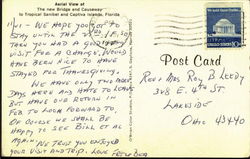 Aerial View of
The new Bridge and Causeway
to Tropical Sanibel and Captiva Islands, Florida
Post Card
11/21 - WE HOPE YOU GOT TO
STAY UNTIL THE
THEN YOU HAD A GOOD
VISIT FOR A CHANGE. WOULD
HAVE BEEN NICE TO HAVE
STAYED FOR THANKSGIVING.
WE HAVE ONLY TWO MORE
DAYS HERE AND HATE TO LEAVE
BUT HAVE OUR RETURN IN
FEB TO LOOK FORWARD TO.
OF COURSE WE SHALL BE
HAPPY TO SEE BILL ET AL
AGAIN. WE TRUST YOU ENJOYED
YOUR VISIT AND TRIP. LOVE
Rev & Mrs Roy B Leedy
348 E. 4th St
LAKESIDE
OHIO 43440